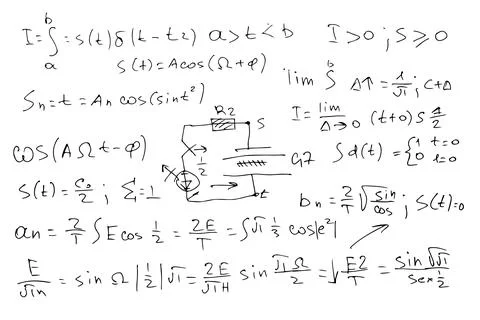 I = ∫ₐᵇ = s(t)δ(t-t2) a>t<b I>0; S≥0
S(t)=Acos(Ω+φ)
lim ∫ᵇ Δ↑=1/√1; C+Δ
Sn=t=An cos(sint²)
R2 S
I=lim Δ→0 (t+0)S Δ/2
COS(AΩt-φ)
1/2 G7
Sd(t)={1 t=0
0 t=0
S(t)=C₀/2; Σ=1
t
bn=2/T √sin/cos; S(t)=0
an=2/T ∫Ecos 1/2=2E/T=∫√1 1/3 cos|e²|
E/√1n=sinΩ|1/2|√1=2E/√1H sin √1Ω/2=√E2/T=sin√√1/sex 1/2